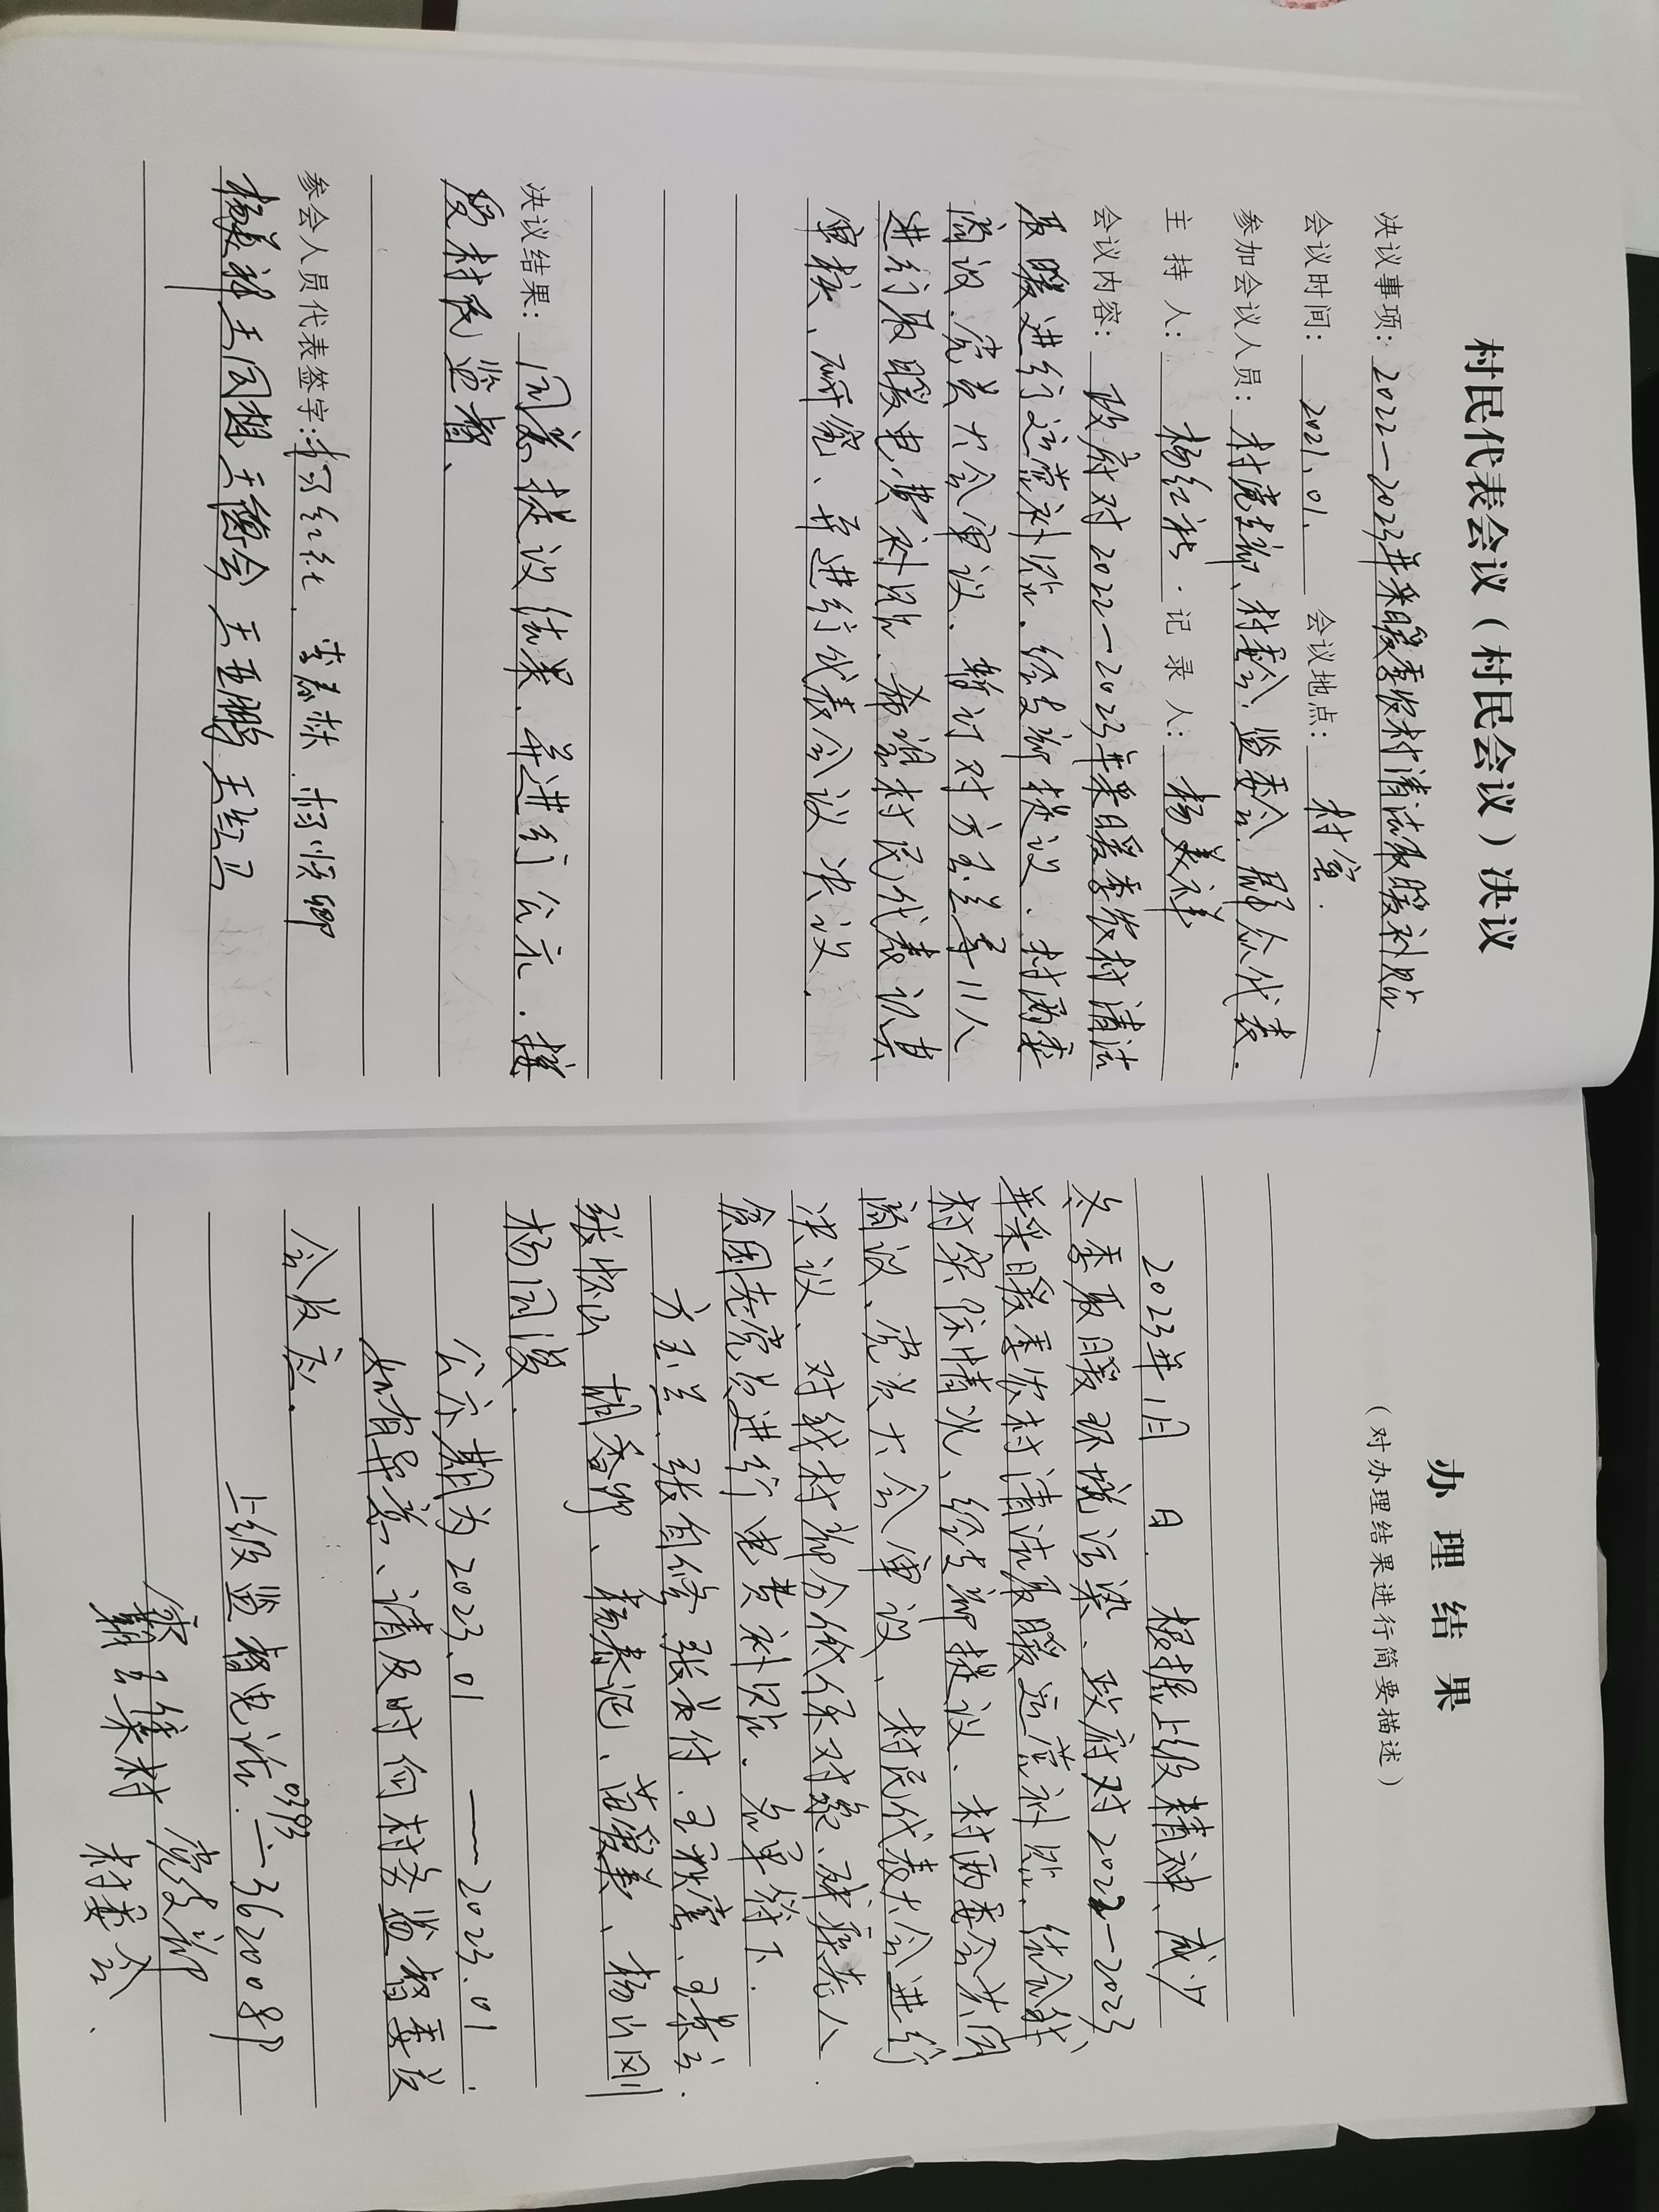 村民代表会议（村民会议）决议
决议事项：2022—2023年采暖季农村清洁取暖补贴.
会议时间：2021.01. 会议地点：村室.
参加会议人员：村党支部、村委会、监委会、群众代表.
主持人：杨红社. 记录人：杨美祥
会议内容：政府对2022—2023年采暖季农村清洁
取暖进行运营补贴.经支部提议、村两委
商议、党员大会审议、暂订对方玉兰等11人
进行取暖电费补贴、希望村民代表认真
审核、研究、并进行代表会议决议.
决议结果：同意提议结果、并进行公示.接
受村民监督、
参会人员代表签字：杨红社、李春林、杨顺卿
杨美祥 王同想 王德会 王亚鹏 王红卫
办理结果
（对办理结果进行简要描述）
2023年1月 日. 根据上级精神、减少
冬季取暖环境污染、政府对2022—2023
年采暖季农村清洁取暖运营补贴、结合我
村实际情况、经支部提议、村两委会共同
商议、党员大会审议、村民代表大会进行
决议、对我村部分低保对象、残疾老人.
贫困老党员进行电费补贴.名单符下.
方玉兰、张自修、张美付、王秋霞、王景云.
张怀山 胡香 、杨春 、苗爱美、杨山刚
杨同 .
公示期为2023.01 —2023.01.
如有异意、请及时向村务监督委员
会反应.
上级监督电话0393.—3620089
霸王集村 党支部
村委会.